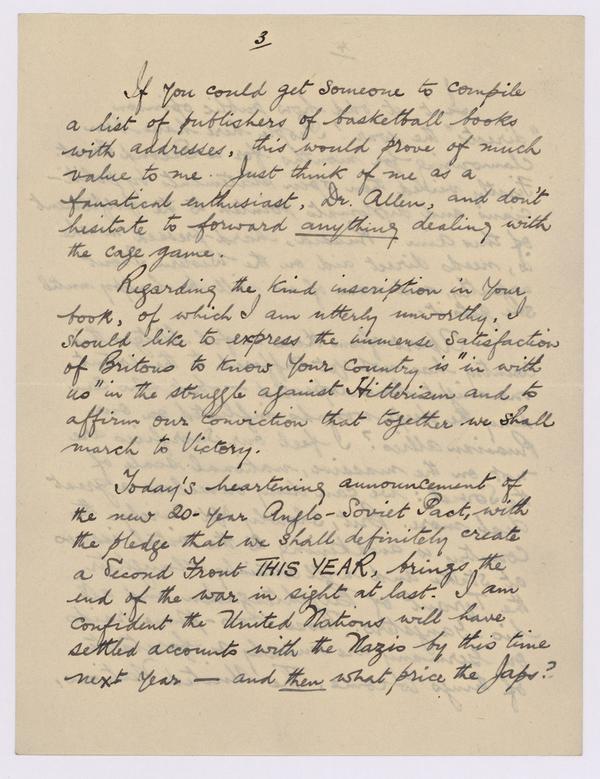 3
If you could get someone to compile
a list of publishers of basketball books
with addresses, this would prove of much
value to me. Just think of me as a
fanatical enthusiast, Dr. Allen, and don't
hesitate to forward anything dealing with
the cage game.
Regarding the kind inscription in your
book, of which I am utterly unworthy, I
should like to express the immense satisfaction
of Britons to know your country is "in with
us" in the struggle against Hitlerism and to
affirm our conviction that together we shall
march to Victory.
Today's heartening announcement of
the new 20-year Anglo-Soviet Pact, with
the pledge that we shall definitely create
a Second Front THIS YEAR, brings the
end of the war in sight at last. I am
confident the United Nations will have
settled accounts with the Nazis by this time
next year — and then what price the Japs?